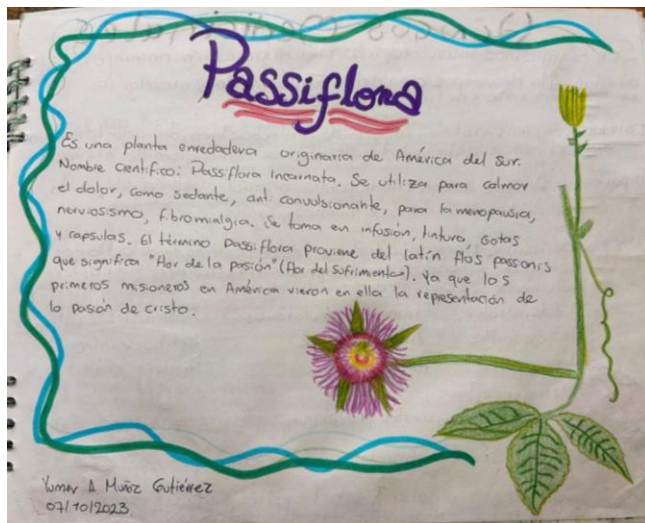 Passiflora
Es una planta enredadera originaria de América del Sur.
Nombre Científico: Passiflora Incarnata. Se utiliza para calmar
el dolor, como sedante, anti convulsionante, para la menopausia,
nerviosismo, fibromialgia. Se toma en infusión, tintura, Gotas
y capsulas. El término passiflora proviene del latín flos passonis
que significa "flor de la pasión" (flor del sufrimento). Ya que los
primeros misioneros en América vieron en ella la representación de
la pasión de cristo.
A Muñoz Gutiérrez
07/10/2023